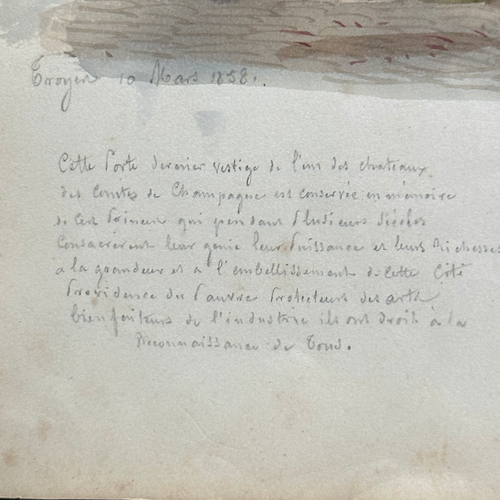 Troyes 10 Mars 1858.
Cette Porte dernier vestige de l'un des chateaux
des Comtes de Champagne est conservée en mémoire
de ces Princes qui pendant Plusieurs Siécles
Consacrérent leur génie leur Puissance et leurs Richesses
a la grandeur et a l'embellissement de cette Cité
Providence du Pauvre Protecteurs des arts
bienfaiteurs de l'industrie ils ont droit à la
Reconnaissance de Tous.